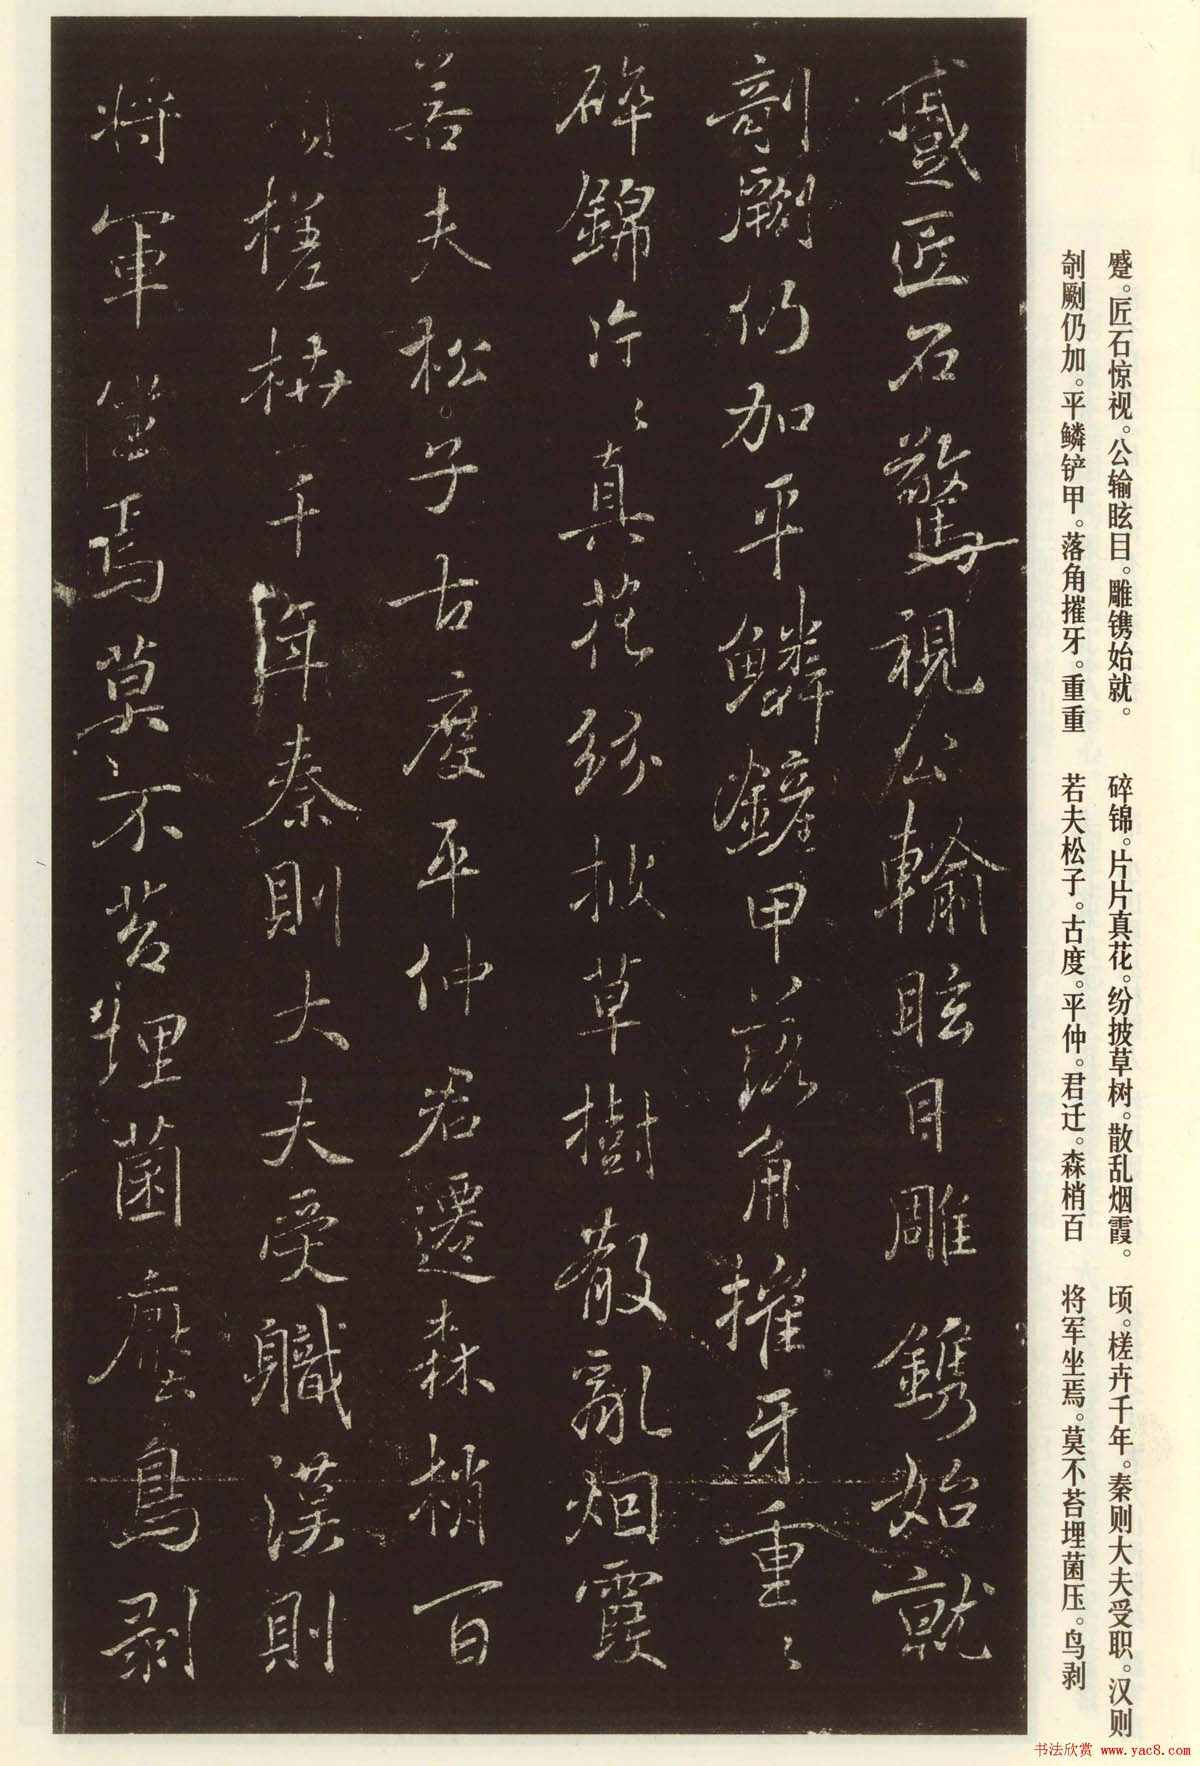 蹙。匠石惊视。公输眩目。雕镌始就。
剞劂仍加。平鳞铲甲。落角摧牙。重重
碎锦。片片真花。纷披草树。散乱烟霞。
若夫松子。古度。平仲。君迁。森梢百
顷。槎卉千年。秦则大夫受职。汉则
将军坐焉。莫不苔埋菌压。鸟剥
蹙匠石驚視公輸眩目雕鐫始就
剞劂仍加平鱗鏟甲落角摧牙重〻
碎錦片〻真花紛披草樹散亂烟霞
若夫松子古度平仲君遷森梢百
頃槎枿千年秦則大夫受職漢則
将軍坐焉莫不苔埋菌壓鳥剥
书法欣赏 www.yac8.com